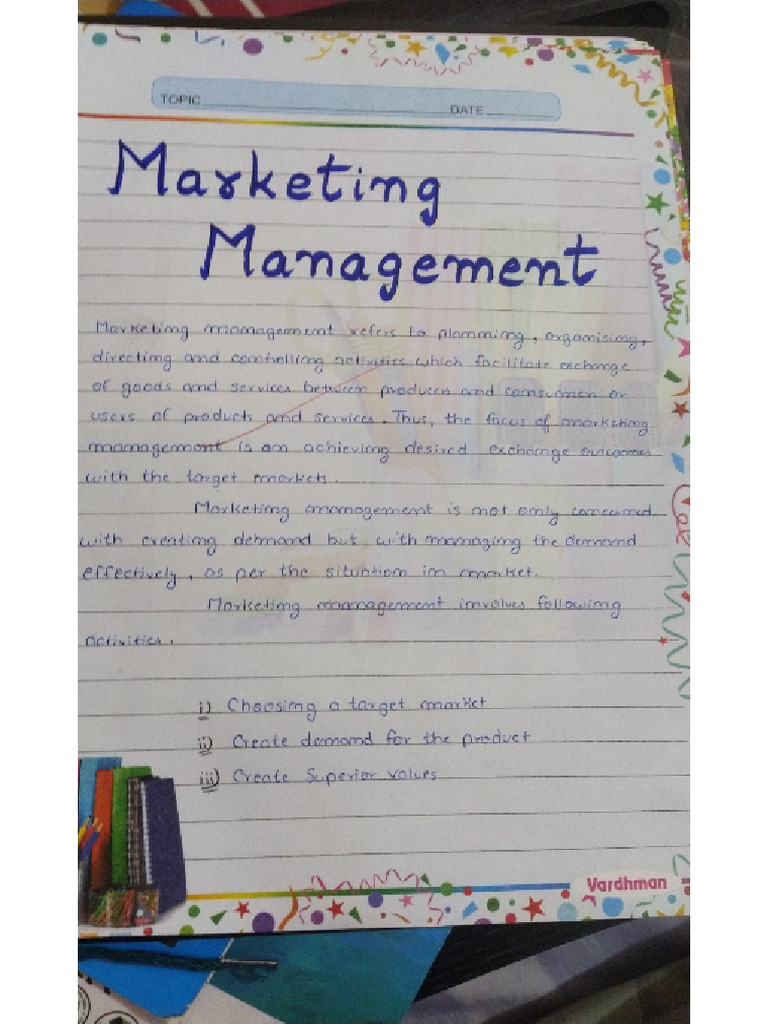 TOPIC DATE
Marketing
Management
Marketing management refers to planning, organising,
directing and controlling activities which facilitate exchange
of goods and services between producers and consumers or
users of products and services. Thus, the focus of marketing
management is on achieving desired exchange outcomes
with the target markets.
Marketing management is not only concerned
with creating demand but with managing the demand
effectively, as per the situation in market.
Marketing management involves following
activities.
i) Choosing a target market
ii) Create demand for the product
iii) Create Superior values
Vardhman